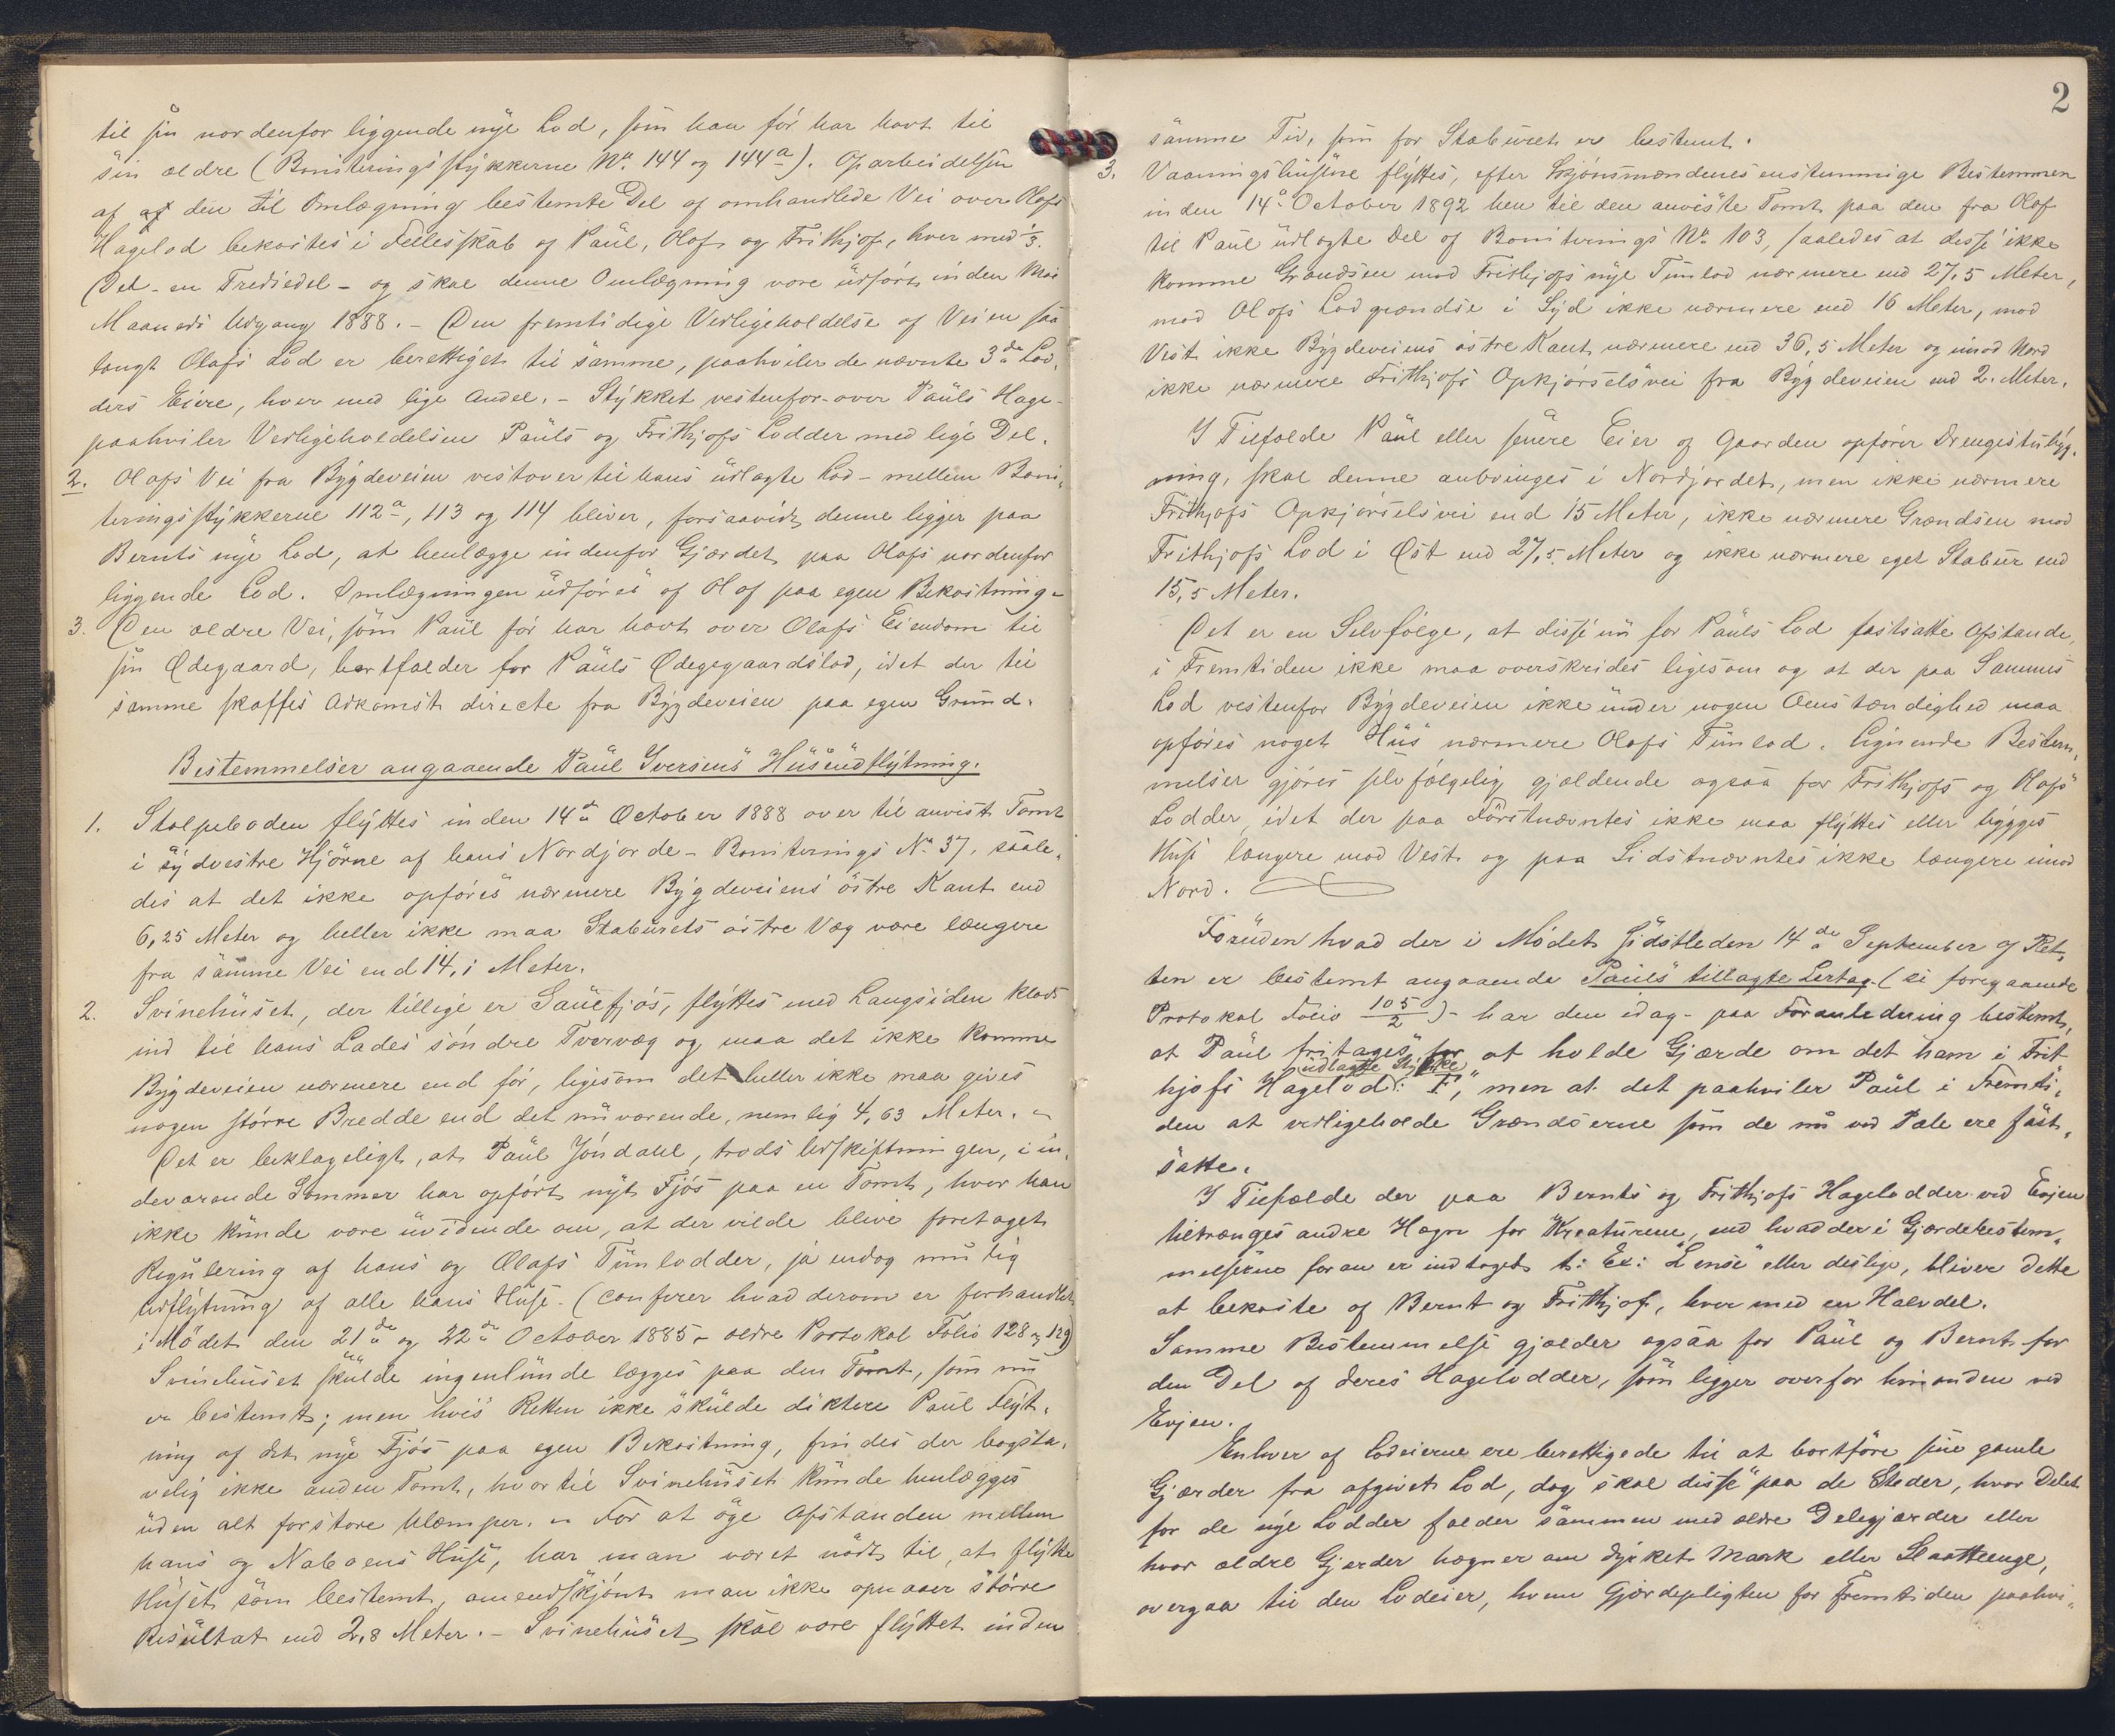 til sin nordenfor liggende nye Lod, som han før har havt til
sin ældre (Boniteringsstykkerne No. 144 og 144a). Oparbeidelsen
af af den til Omlægning bestemte Del af omhandlede Vei over Olafs
Hagelod bekostes i Fællesskab af Paul, Olaf og Frithjof, hver med 1/3.
Del - en Trediedel - og skal denne Omlægning være udført inden Mai
Maaneds Udgang 1888. - Den fremtidige Vedligeholdelse af Veien saa
langt Olafs Lod er berettiget til samme, paahviler de nævnte 3de Lod„
ders Eiere, hver med lige Andel. - Stykket vestenfor over Pauls Hage-
paahviler Vedligeholdelsen Pauls og Frithjofs Lodder med lige Del.
2. Olafs Vei fra Bygdeveien vestover til hans udlagte Lod - mellem Boni„
teringsstykkerne 112a, 113 og 114 bliver, forsaavidt denne ligger paa
Bernts nye Lod, at henlægge indenfor Gjærdet paa Olafs nordenfor
liggende Lod. Omlægningen udføres af Olaf paa egen Bekostning.
3. Den ældre Vei, som Paul før har havt over Olafs Eiendom til
sin Ødegaard, bortfalder for Pauls Ødegaardslod, idet der til
samme skaffes Adkomst directe fra Bygdeveien paa egen Grund.
Bestemmelser angaaende Paul Iversens Husudflytning.
1. Stolpeboden flyttes inden 14de October 1888 over til anvist Tomt
i sydvestre Hjørne af hans Nordjorde - Boniterings No 37, saale„
des at det ikke opføres nærmere Bygdeveiens østre Kant end
6,25 Meter og heller ikke maa Staburets østre Væg være længere
fra samme Vei end 14,1 Meter.
2. Svinehuset, der tillige er Sauefjøs, flyttes med Langsiden klods
ind til hans Lades søndre Tvervæg og maa det ikke komme
Bygdeveien nærmere end før, ligesom det heller ikke maa gives
nogen større Bredde end det nuværende, nemlig 4,63 Meter. -
Det er beklageligt, at Paul Jøndahl, trods Udskiftningen, i in„
deværende Sommer har opført nyt Fjøs paa en Tomt, hvor han
ikke kunde være uvidende om, at der vilde blive foretaget
Regulering af hans og Olafs Tunlodder, ja endog mulig
Udflytning af alle hans Huse. (conferer hvad derom er forhandlet
i Mødet den 21de og 22de October 1885 - ældre Protokol Folio 128 og 129)
Svinehuset skulde ingenlunde lægges paa den Tomt, som nu
er bestemt; men hvis Retten ikke skulde diktere Paul Flyt„
ning af det nye Fjøs paa egen Bekostning, findes der bogsta„
velig ikke anden Tomt, hvortil Svinehuset kunde henlægges
uden alt forstore Ulæmper. - For at øge Afstanden mellem
hans og Naboens Huse, har man været nødt til, at flytte
Huset som bestemt, omendskjønt man ikke opnaaer større
Resultat end 2,8 Meter. - Svinehuset skal være flyttet inden
2
samme Tid, som for Staburet er bestemt.
3. Vaaningshusene flyttes, efter Skjønsmændenes enstemmige Bestemmen
inden 14de October 1892 hen til den anviste Tomt paa den fra Olaf
til Paul udlagte Del af Boniterings No. 103, saaledes at disse ikke
komme Grændsen mod Frithjofs nye Tunlod nærmere end 27,5 Meter,
mod Olafs Lodgrændse i Syd ikke nærmere end 16 Meter, mod
Vest ikke Bygdeveiens østre Kant nærmere end 36,5 Meter og imod Nord
ikke nærmere Frithjofs Opkjørselsvei fra Bygdeveien end 2. Meter.
I Tilfælde Paul eller senere Eier af Gaarden opfører Drengestubyg„
ning, skal denne anbringes i Nordjordet, men ikke nærmere
Frithjofs Opkjørselsvei end 15 Meter, ikke nærmere Grændsen mod
Frithjofs Lod i Øst end 27,5 Meter og ikke nærmere eget Stabur end
15,5 Meter.
Det er en Selvfølge, at disse nu for Pauls Lod fastsatte Afstande,
i Fremtiden ikke maa overskrides ligesom og at der paa Sammes
Lod vestenfor Bygdeveien ikke under nogen Omstændighed maa
opføres noget Hus nærmere Olafs Tunlod. Lignende Bestem„
melser gjøres selvfølgelig gjældende ogsaa for Frithjofs og Olafs
Lodder, idet der paa Førstnævntes ikke maa flyttes eller bygges
Huse længere mod Vest og paa Sidstnævntes ikke længere imod
Nord.
Foruden hvad der i Mødet sidstleden 14de September af Ret„
ten er bestemt angaaende Pauls tillagte Lertag (se foregaaende
Protokol Folio 105/2) - har den idag - paa Foranledning bestemt,
at Paul fritages for at holde Gjærde om det ham i Frit
udlagte Stykke
hjofs Hagelod: F, men at det paahviler Paul i Fremti„
den at vedligeholde Grændserne som de nu ved Pæle ere fast„
satte.
I Tilfælde der paa Bernts og Frithjofs Hagelodder ved Evjen
tiltrænges andre Hegn for Kreaturene, end hvad der i Gjærdebestem„
melserne foran er indtaget t: Ex: "Lense" eller deslige, bliver dette
at bekoste af Bernt og Frithjof, hver med en Halvdel.
Samme Bestemmelse gjælder ogsaa for Paul og Bernt for
den Del af deres Hagelodder, som ligger overfor hinanden ved
Evjen.
Enhver af Lodeierne ere berettigede til at bortføre sine gamle
Gjærder fra afgivet Lod, dog skal disse paa de Steder, hvor Delet
for de nye Lodder falder sammen med ældre Delegjærder eller
hvor ældre Gjerder hegner om dyrket Mark eller Slaatteenge,
overgaa til den Lodeier, hvem Gjærdepligten for Fremtiden paahvi„